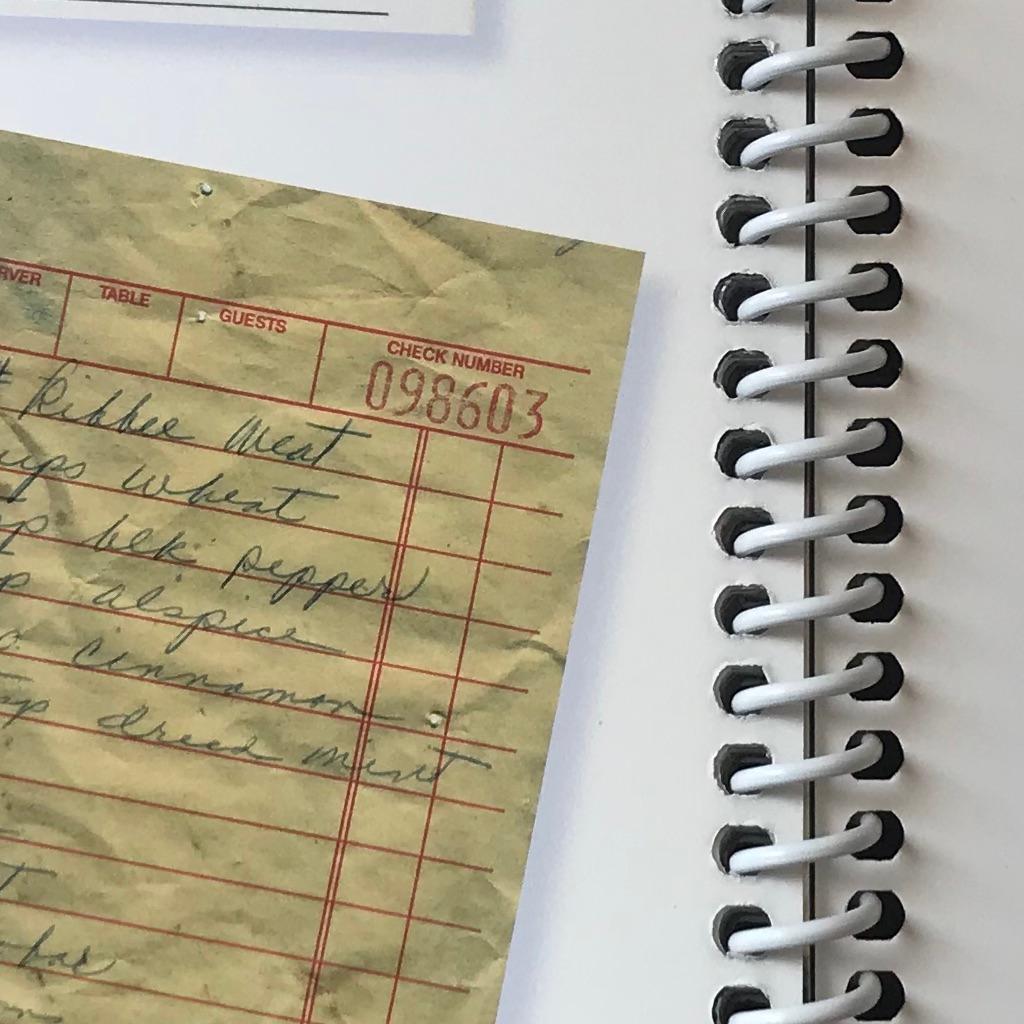 RVER TABLE GUESTS CHECK NUMBER
098603
# Kibbee Meat
ups wheat
sp blk pepper
sp alspice
cinnamon
sp dried mint